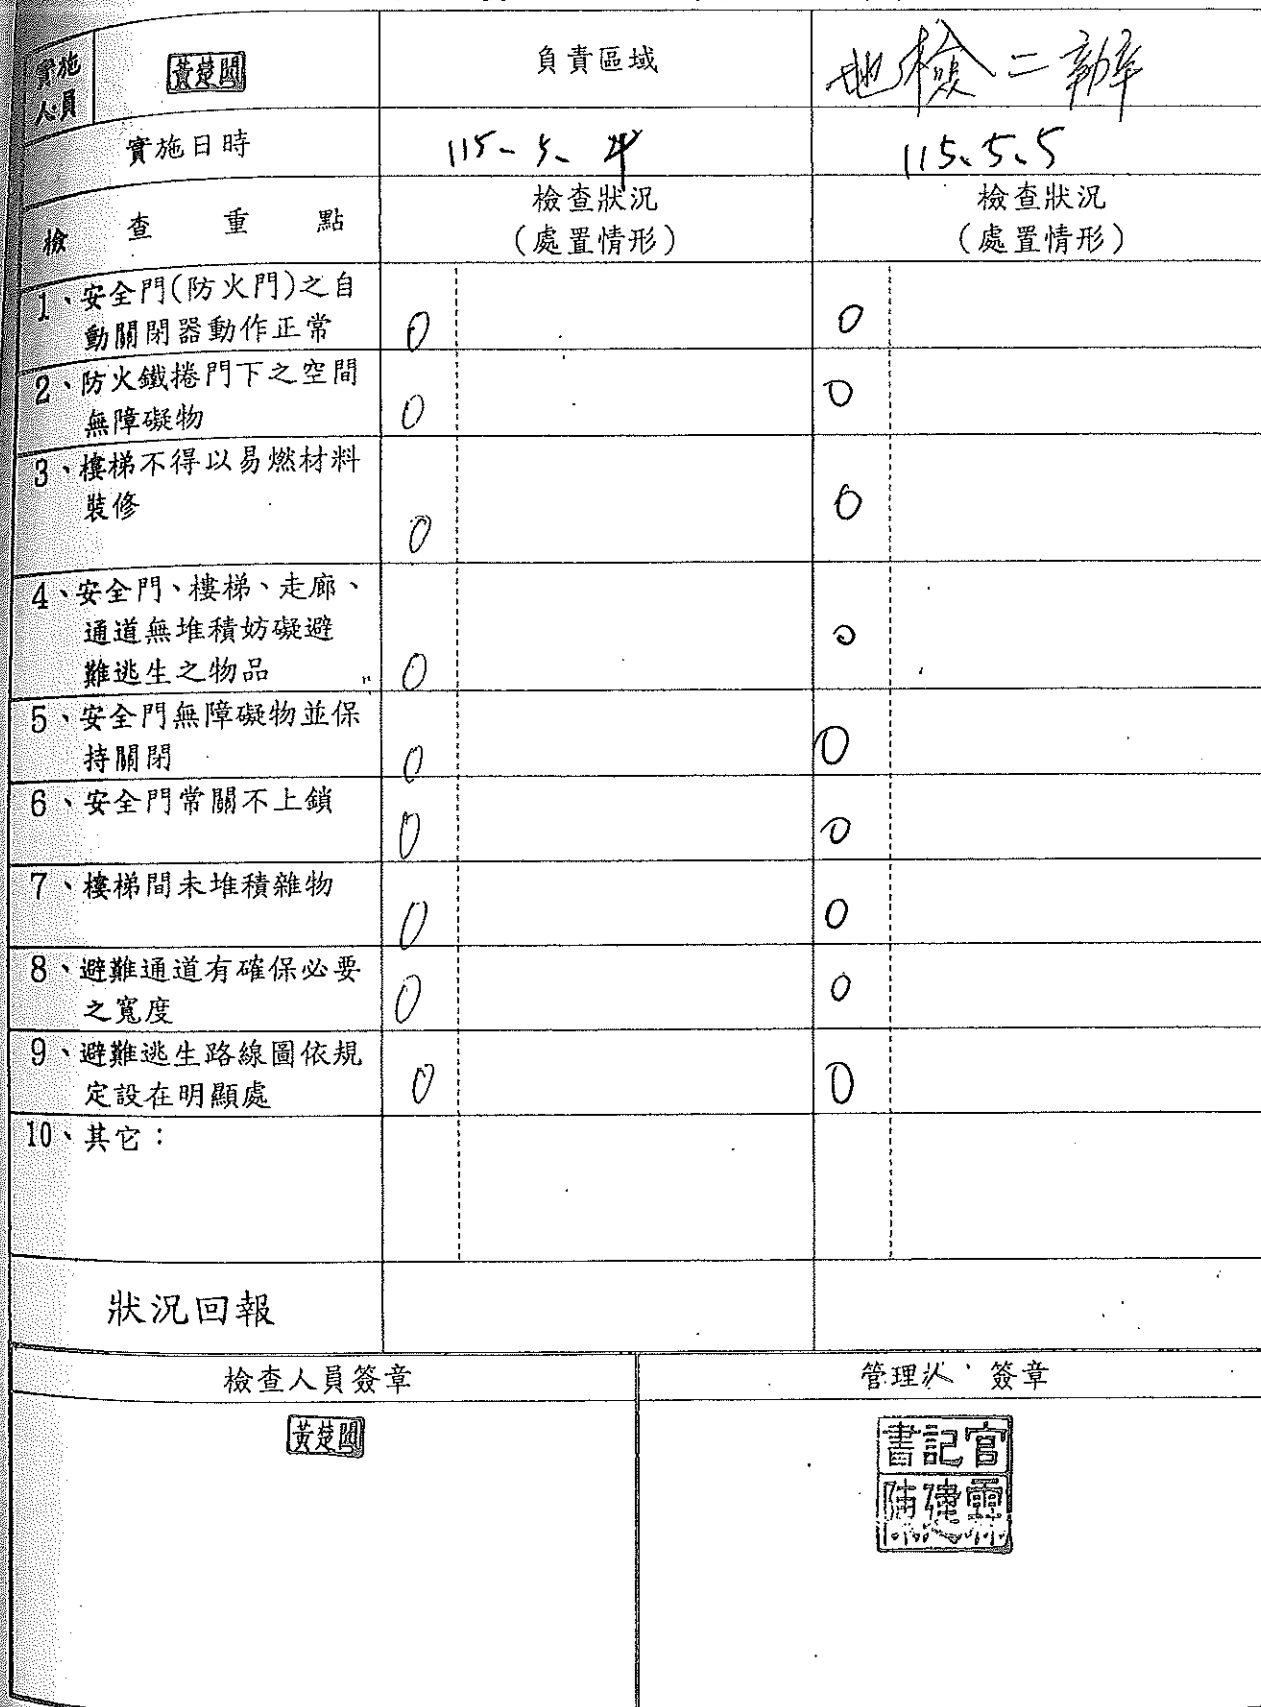 實施人員
黃楚閎
負責區域
地檢二辦
實施日時
115.5.4
115.5.5
檢查重點
檢查狀況
(處置情形)
檢查狀況
(處置情形)
1、安全門(防火門)之自
動關閉器動作正常
0
0
2、防火鐵捲門下之空間
無障礙物
0
0
3、樓梯不得以易燃材料
裝修
0
0
4、安全門、樓梯、走廊、
通道無堆積妨礙避
難逃生之物品
0
0
5、安全門無障礙物並保
持關閉
0
0
6、安全門常關不上鎖
0
0
7、樓梯間未堆積雜物
0
0
8、避難通道有確保必要
之寬度
0
0
9、避難逃生路線圖依規
定設在明顯處
0
0
10、其它：
狀況回報
檢查人員簽章
管理 簽章
黃楚閎
書記官